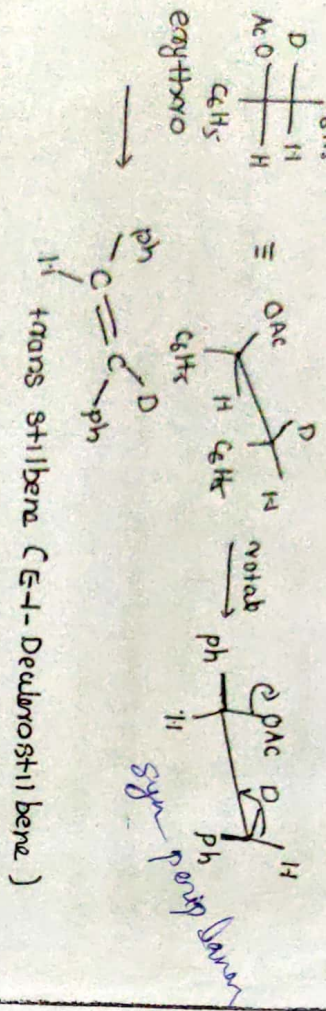 D H
AcO H
C6H5
erythro
≡
OAc D
H
H
C6H5 C6H5
rotate
OAc D H
Ph
H Ph
syn periplanar
Ph D
C=C
H Ph
trans stilbene (E-1-Deuterostilbene)